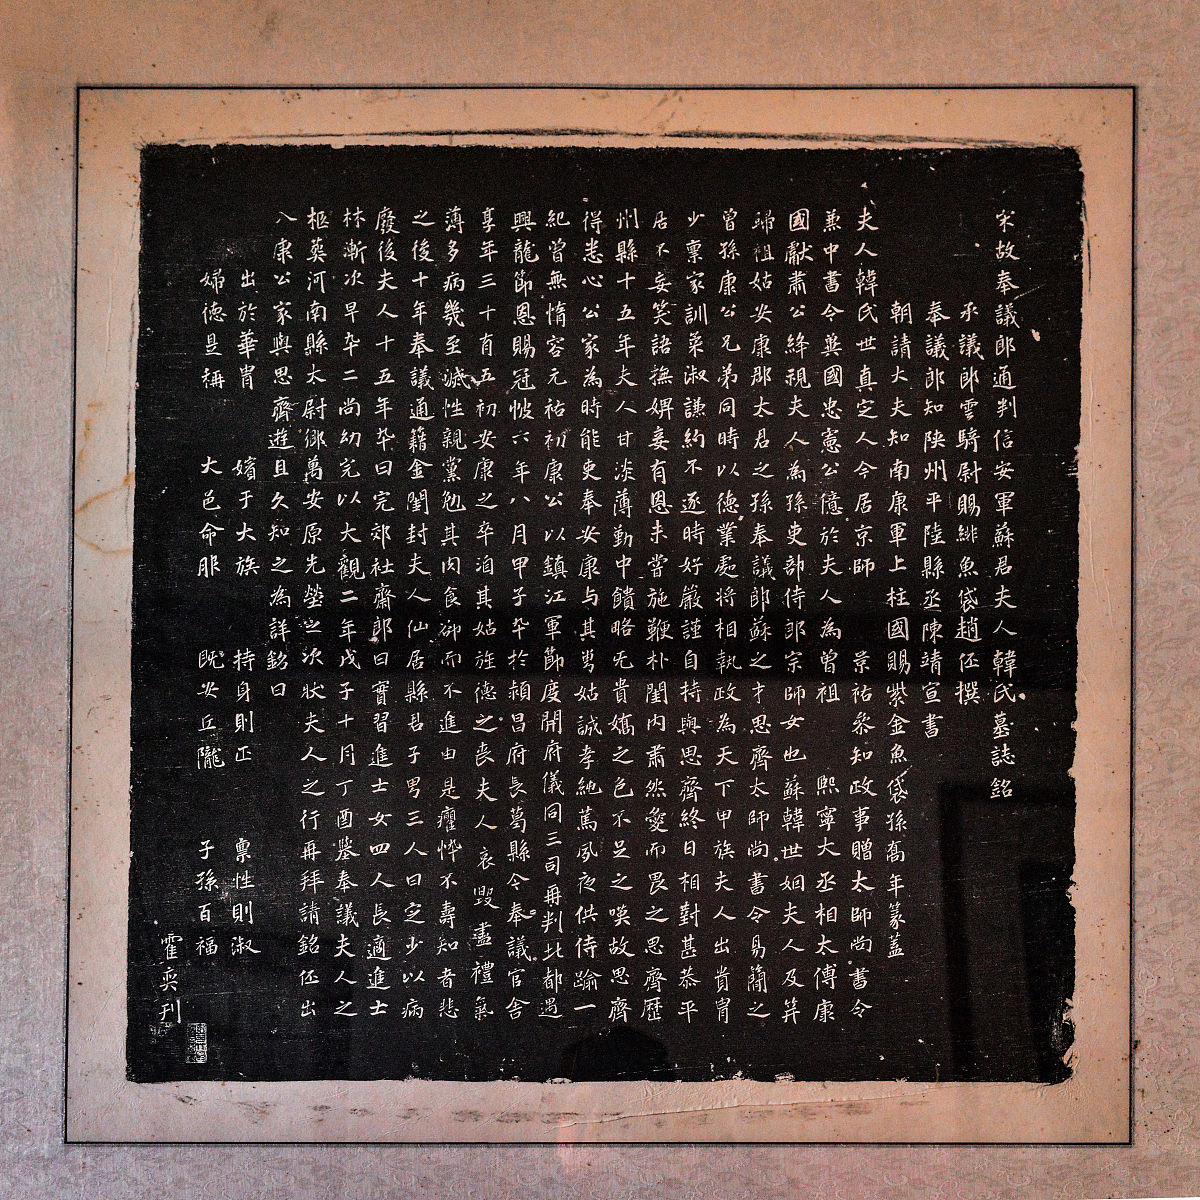 宋故奉議郎通判信安軍蘇君夫人韓氏墓誌銘
承議郎雲騎尉賜緋魚袋趙伾撰
奉議郎知陝州平陸縣丞陳靖宣書
朝請大夫知南康軍上柱國賜紫金魚袋孫喬年篆蓋
夫人韓氏世真定人今居京師 景祐參知政事贈太師尚書令
兼中書令冀國忠憲公億於夫人為曾祖 熙寧大丞相太傅康
國獻肅公絳視夫人為孫吏部侍郎宗師女也蘇韓世姻夫人及笄
歸祖姑安康郡太君之孫奉議郎蘇之才思齊太師尚書令易簡之
曾孫康公兄弟同時以德業處將相執政為天下甲族夫人出貴冑
少稟家訓柔淑謙約不逐時好嚴謹自持與思齊終日相對甚恭平
居不妄笑語撫婢妾有恩未嘗施鞭朴閨內肅然愛而畏之思齊歷
州縣十五年夫人甘淡薄勤中饋略无貴嬌之色不足之嘆故思齊
得悉心公家為時能吏奉安康与其舅姑誠孝純篤夙夜供侍踰一
紀曾無惰容元祐初康公以鎮江軍節度開府儀同三司再判北都遇
興龍節恩賜冠帔六年八月甲子卒於潁昌府長葛縣令奉議官舍
享年三十有五初安康之卒洎其姑旌德之喪夫人哀毀盡禮氣
薄多病幾至滅性親黨勉其肉食卻而不進由是癯悴不壽知者悲
之後十年奉議通籍金閨封夫人仙居縣君子男三人曰定少以病
廢後夫人十五年卒曰完郊社齋郎曰實習進士女四人長適進士
林漸次早卒二尚幼完以大觀二年戊子十月丁酉塟奉議夫人之
柩葬河南縣太尉鄉萬安原先塋之次狀夫人之行再拜請銘伾出
入康公家與思齊遊且久知之為詳銘曰
出於華冑 嬪于大族 持身則正 稟性則淑
婦德是稱 大邑命服 既安丘隴 子孫百福
霍奕刊